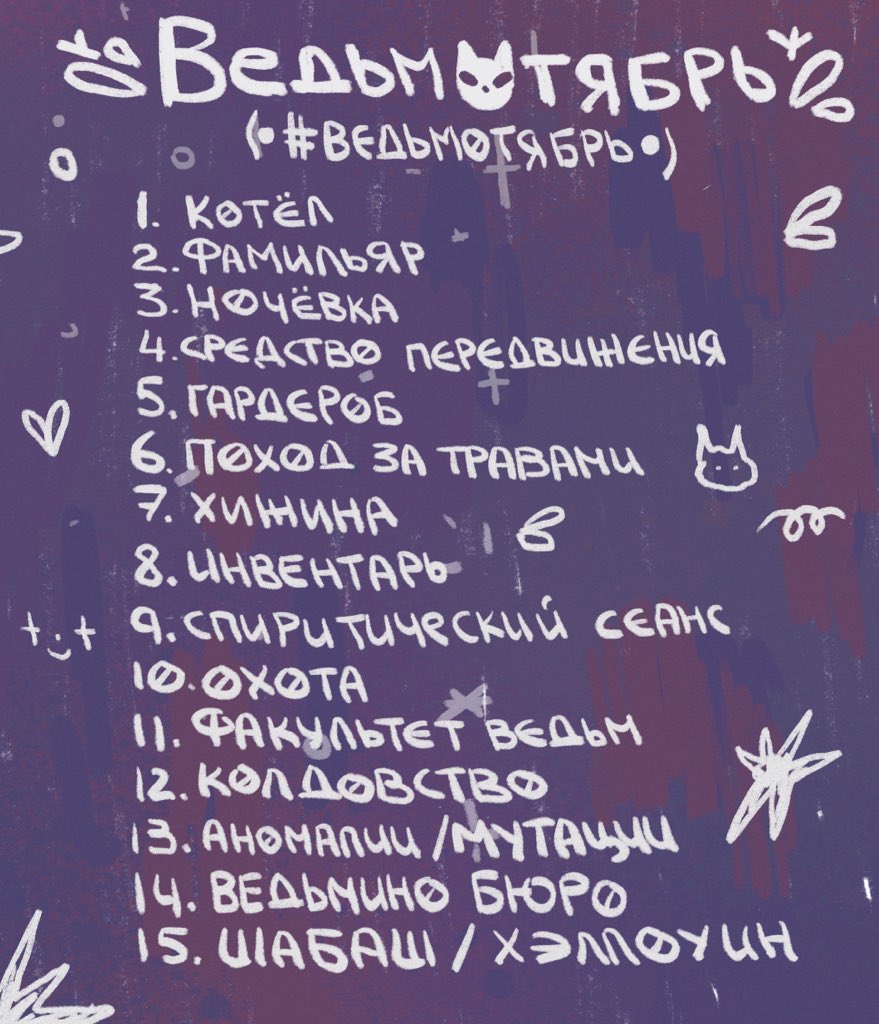 Ведьмотябрь
(•#ВЕДЬМОТЯБРЬ•)
1. КОТЁЛ
2. ФАМИЛЬЯР
3. НОЧЁВКА
4. СРЕДСТВО ПЕРЕДВИЖЕНИЯ
5. ГАРДЕРОБ
6. ПОХОД ЗА ТРАВАМИ
7. ХИЖИНА
8. ИНВЕНТАРЬ
9. СПИРИТИЧЕСКИЙ СЕАНС
10. ОХОТА
11. ФАКУЛЬТЕТ ВЕДЬМ
12. КОЛДОВСТВО
13. АНОМАЛИИ / МУТАЦИИ
14. ВЕДЬМИНО БЮРО
15. ШАБАШ / ХЭЛЛОУИН